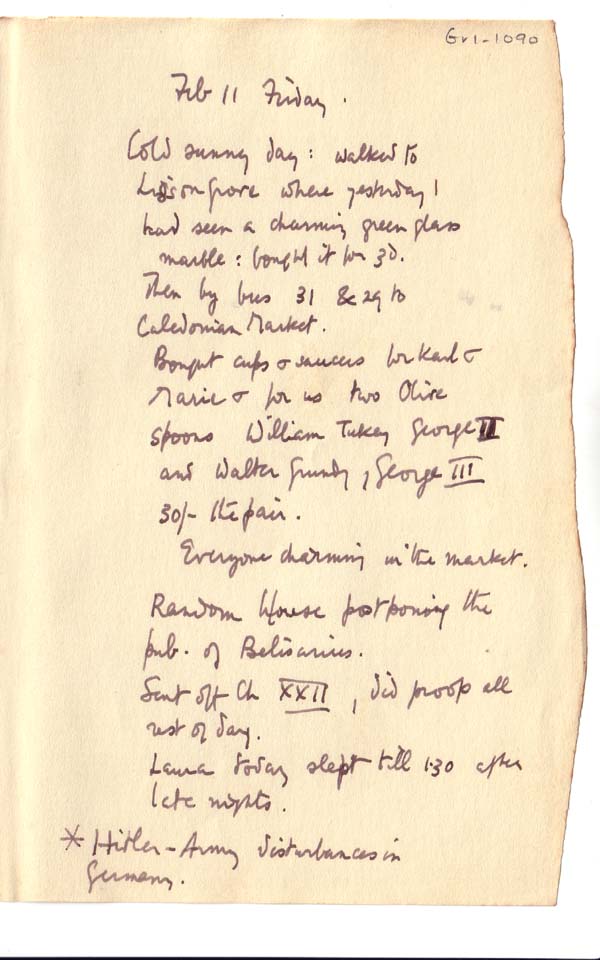 Gv1-1090
Feb 11 Friday.
Cold sunny day: walked to
Lisson Grove where yesterday I
had seen a charming green glass
marble: bought it for 3d.
Then by bus 31 & 29 to
Caledonian Market.
Bought cups & saucers for Karl &
Marie & for us two Olive
spoons William Tukey George II
and Walter Grundy, George III
30/- the pair.
Everyone charming in the market.
Random House postponing the
pub. of Belisarius.
Sent off Ch XXII, did proofs all
rest of day.
Laura today slept till 1.30 after
late nights.
* Hitler-Army disturbances in
Germany.